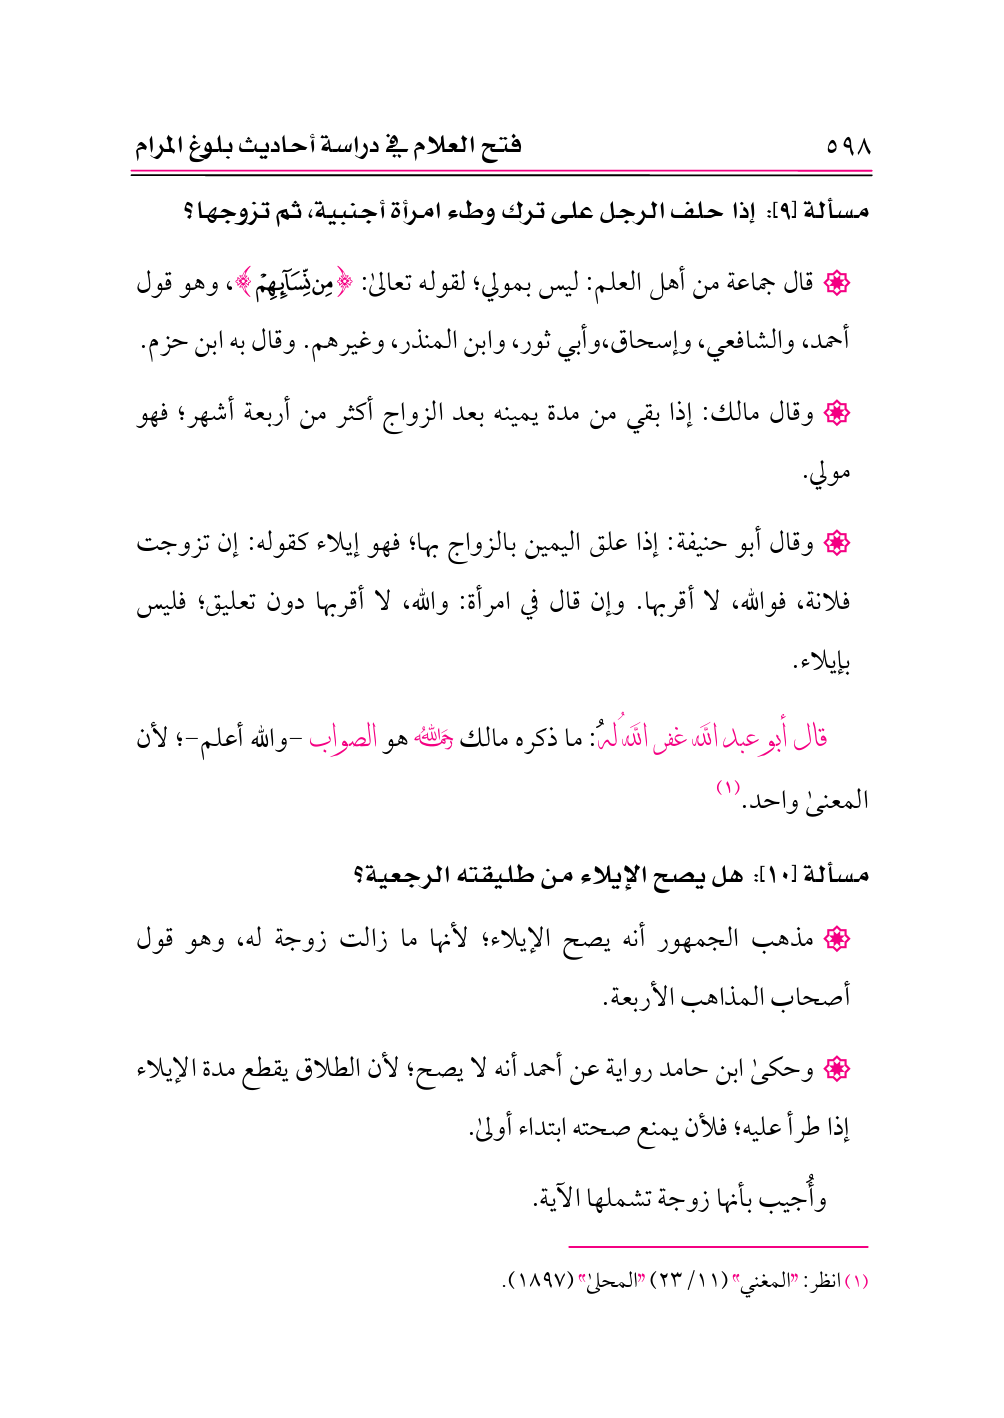 ٥٩٨ فتح العلام في دراسة أحاديث بلوغ المرام
مسألة [٩]: إذا حلف الرجل على ترك وطء امرأة أجنبية، ثم تزوجها؟
قال جماعة من أهل العلم: ليس بمولي؛ لقوله تعالىٰ: ﴿مِن نِّسَآئِهِمۡ﴾، وهو قول
أحمد، والشافعي، وإسحاق،وأبي ثور، وابن المنذر، وغيرهم. وقال به ابن حزم.
وقال مالك: إذا بقي من مدة يمينه بعد الزواج أكثر من أربعة أشهر؛ فهو
مولي.
وقال أبو حنيفة: إذا علق اليمين بالزواج بها؛ فهو إيلاء كقوله: إن تزوجت
فلانة، فوالله، لا أقربها. وإن قال في امرأة: والله، لا أقربها دون تعليق؛ فليس
بإيلاء.
قال أبو عبد الله غفر الله لهُ: ما ذكره مالك رحمه الله هو الصواب -والله أعلم-؛ لأن
المعنىٰ واحد.(١)
مسألة [١٠]: هل يصح الإيلاء من طليقته الرجعية؟
مذهب الجمهور أنه يصح الإيلاء؛ لأنها ما زالت زوجة له، وهو قول
أصحاب المذاهب الأربعة.
وحكىٰ ابن حامد رواية عن أحمد أنه لا يصح؛ لأن الطلاق يقطع مدة الإيلاء
إذا طرأ عليه؛ فلأن يمنع صحته ابتداء أولىٰ.
وأُجيب بأنها زوجة تشملها الآية.
(١) انظر: "المغني" (١١/ ٢٣) "المحلىٰ" (١٨٩٧).